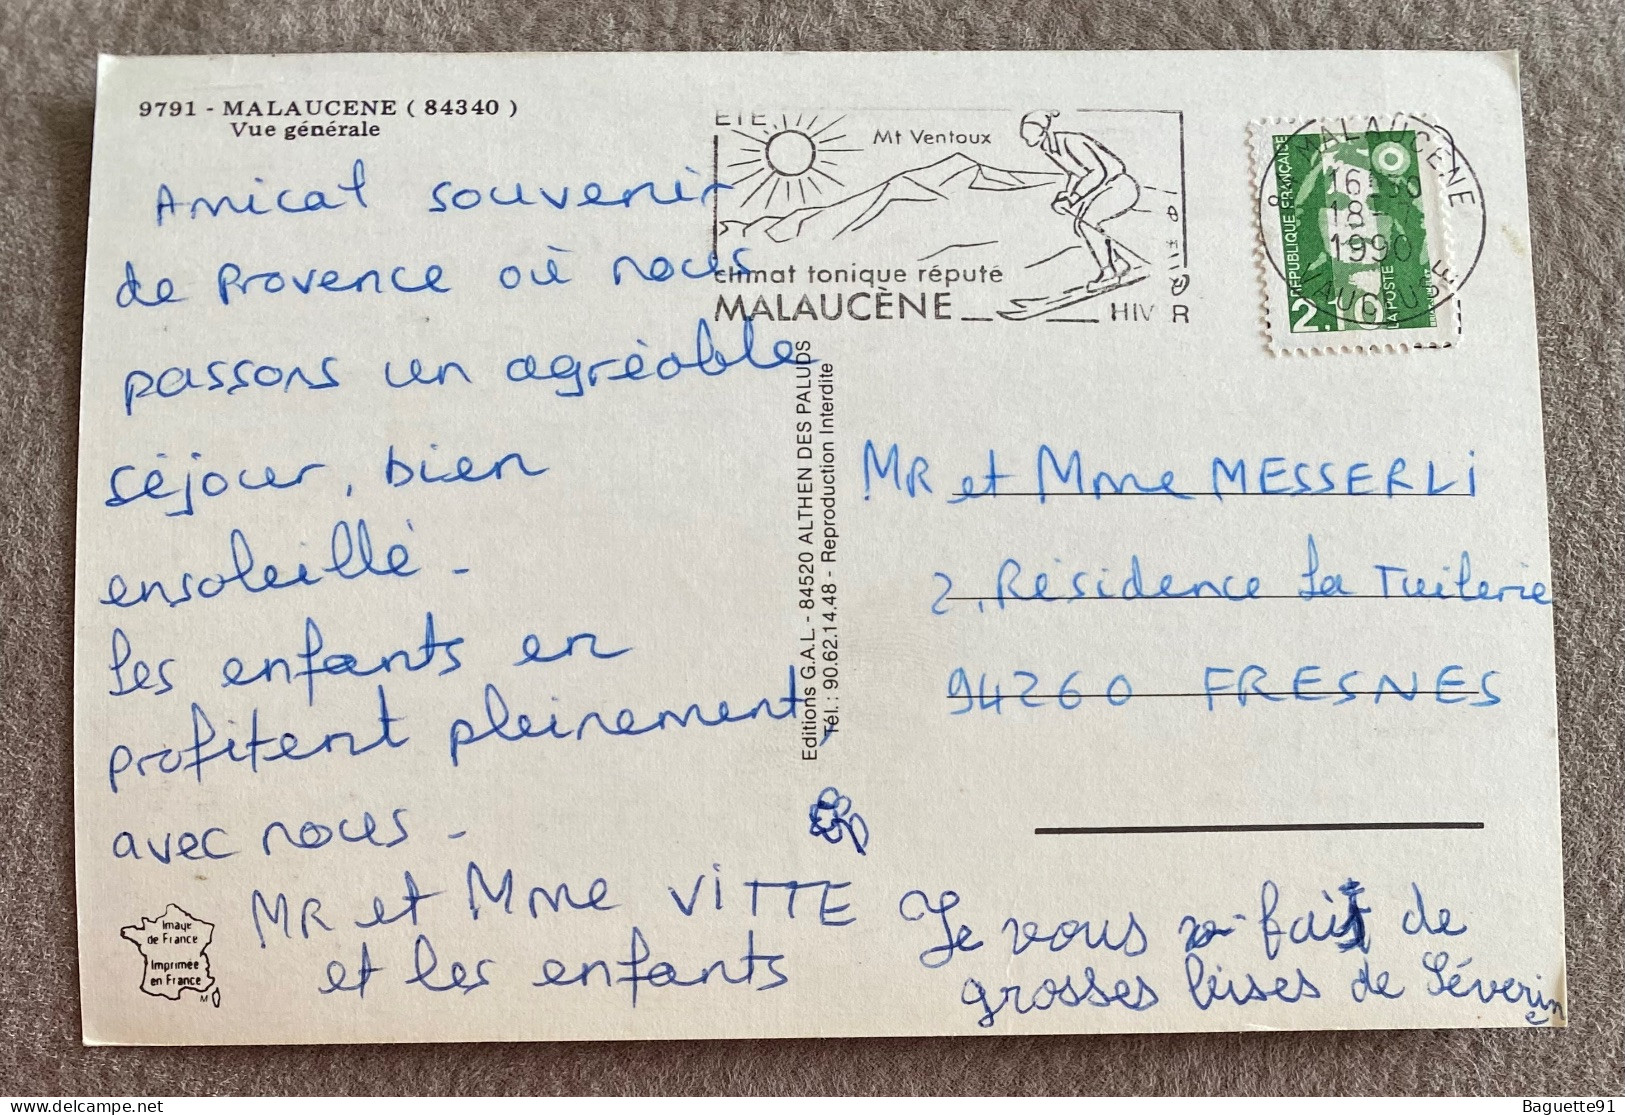 9791 - MALAUCENE ( 84340 )
Vue générale
Amical souvenir
de Provence où nous
passons un agréable
séjour, bien
ensoleillé -
les enfants en
profitent pleinement,
avec nous -
MR et Mme VITTE
et les enfants
Image
de France
Imprimée
en France
ETE
Mt Ventoux
climat tonique réputé
MALAUCÈNE
HIV R
MALAUCENE
18 - 7
1990
VAUCLUSE
REPUBLIQUE FRANÇAISE
2,10
LA POSTE
Editions G.A.L. - 84520 ALTHEN DES PALUDS
Tél. : 90.62.14.48 - Reproduction Interdite
MR et Mme MESSERLI
2, Résidence La Tuilerie
94260 FRESNES
Je vous fait de
grosses bises de Séverine
Baguette91